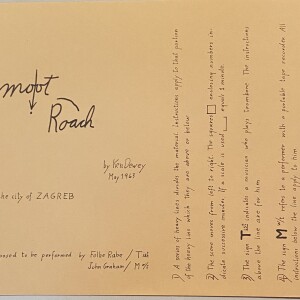 mo↓t
Roach
by Ken Dewey
May 1963
the city of ZAGREB
posed to be performed by Folke Rabe / T ab
John Graham / M %
1) A series of heavy lines divide the material, instructions apply to that portion
of the heavy line which they are above or below.
2) The score moves from left to right. The squares □ enclosing numbers in-
dicate successive minutes. If a scale is used, equals 1 minute.
3) The sign T ab indicates a musician who plays trombone. The instructions
above the line are for him.
4) The sign M % refers to a performer with a portable tape recorder. All
instructions below the line apply to him.